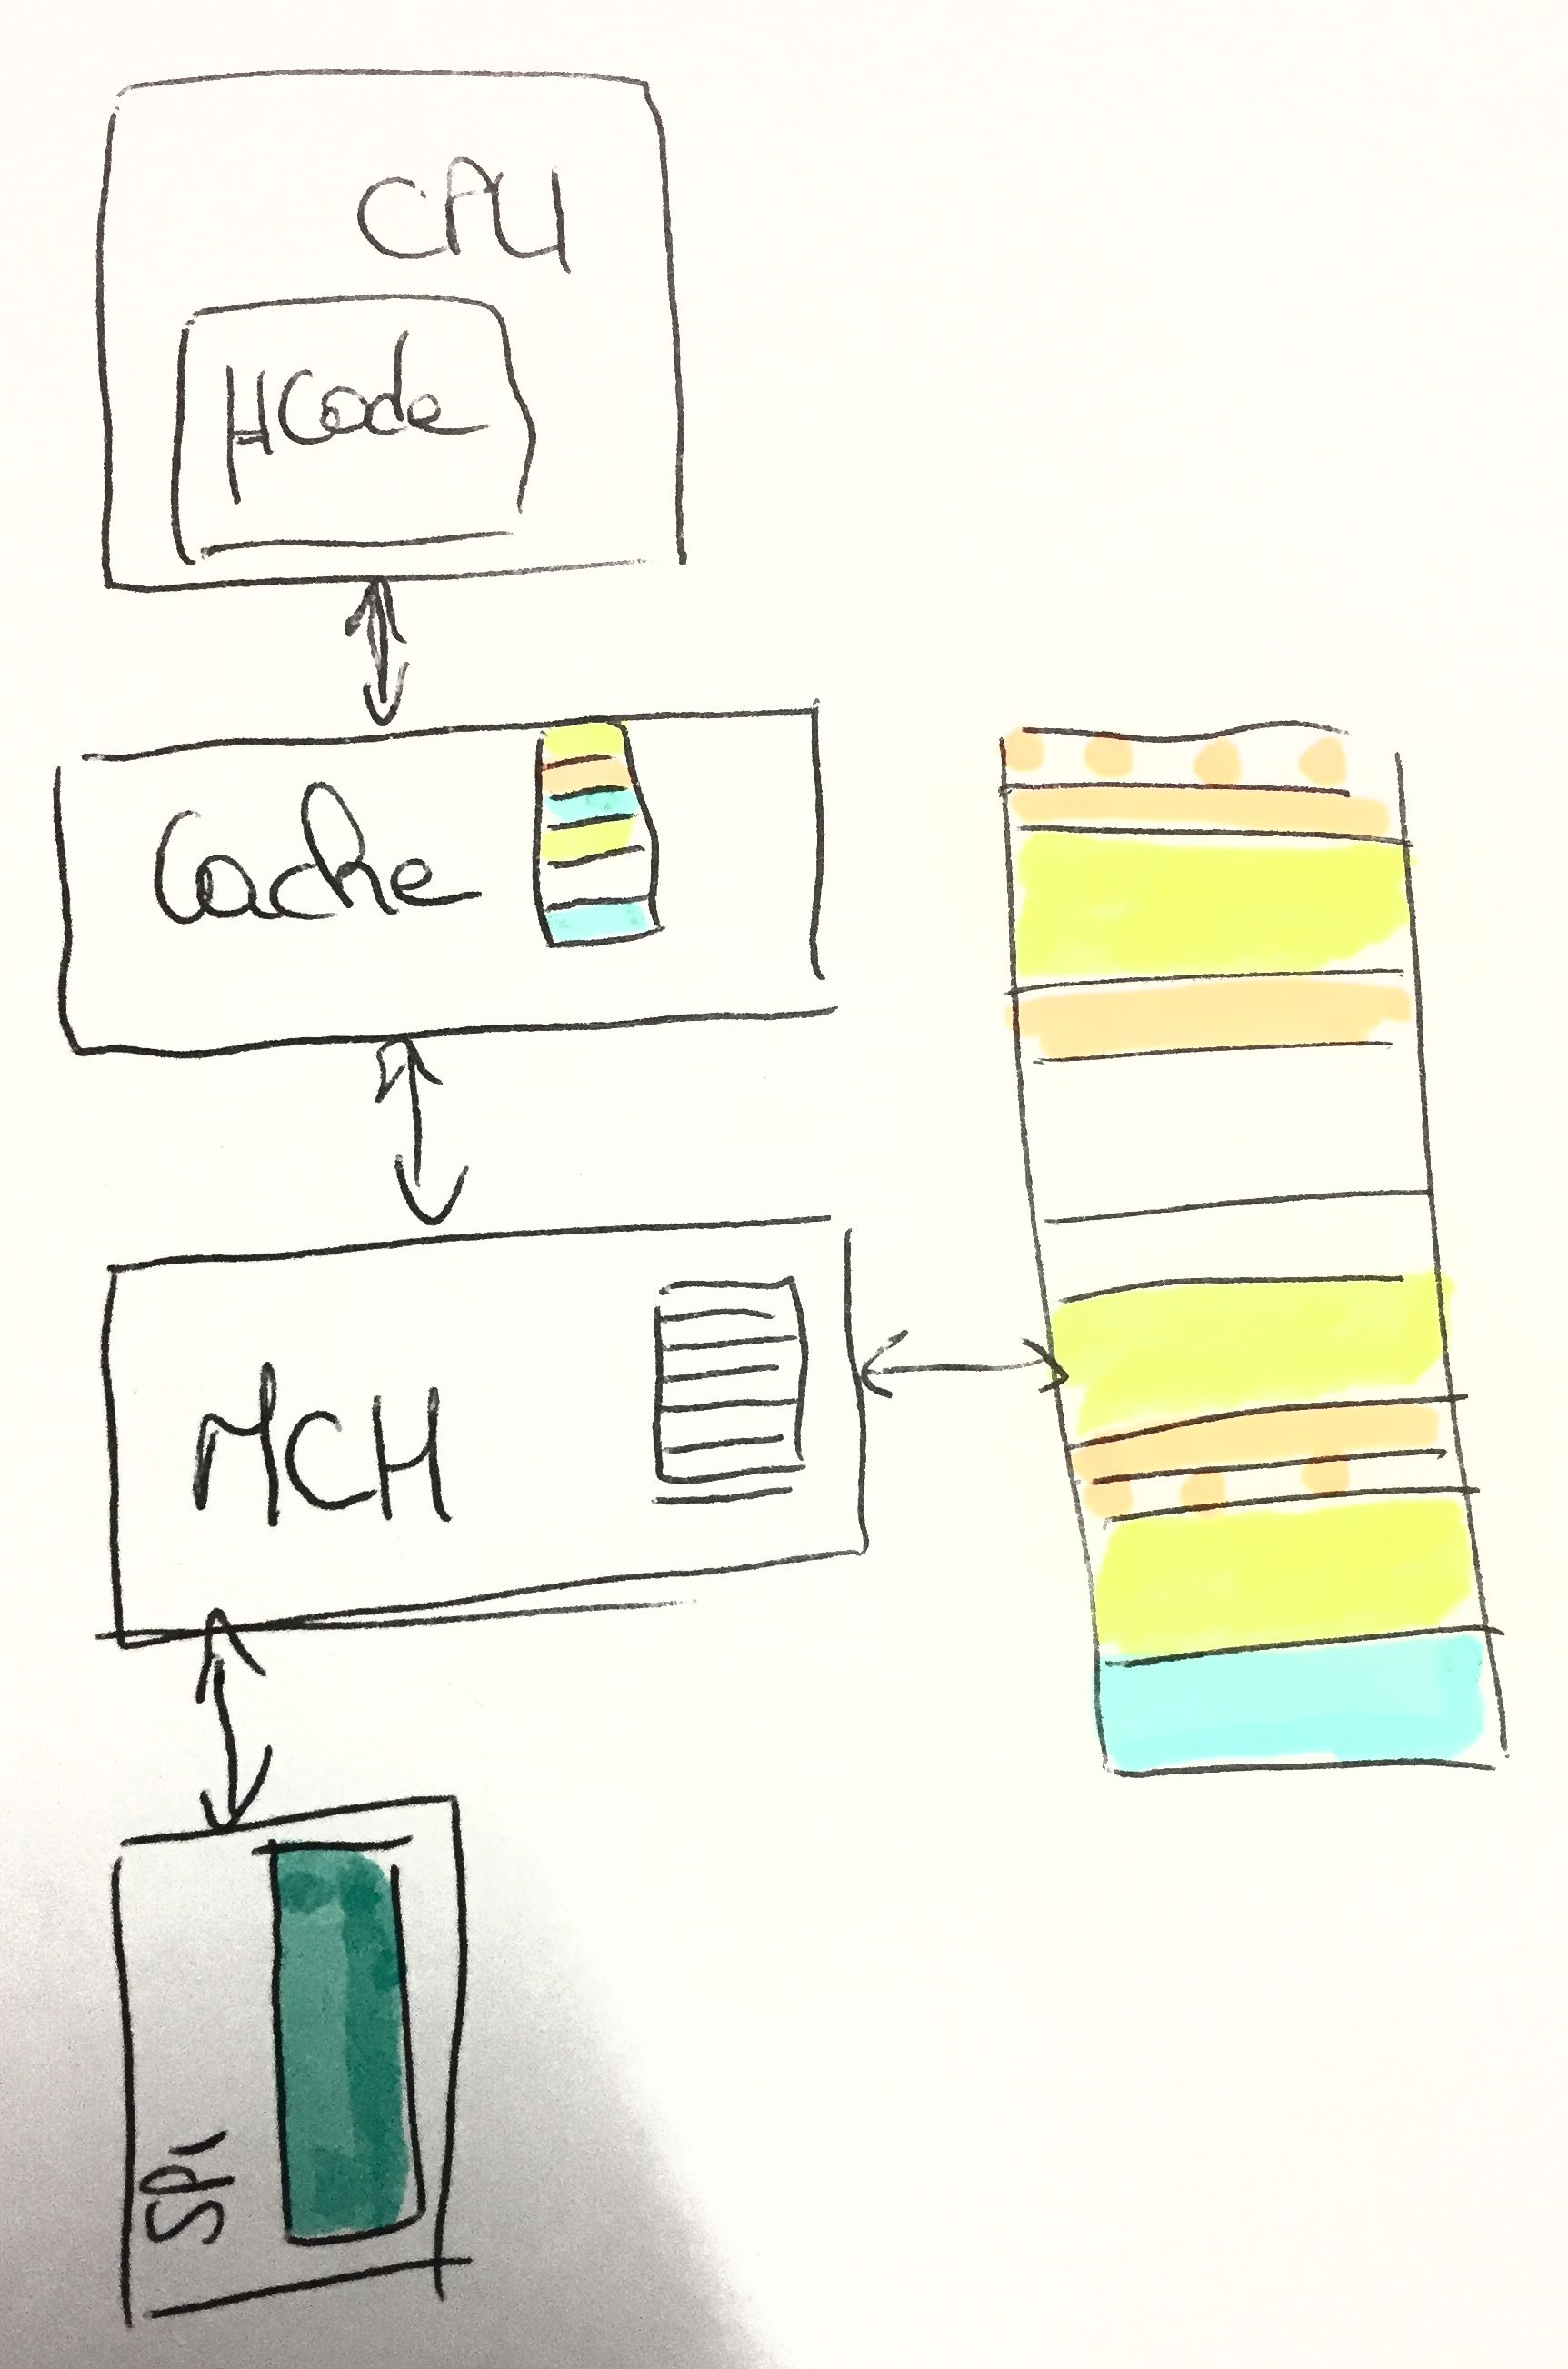 CPU
µCode
Cache
MCH
SPi